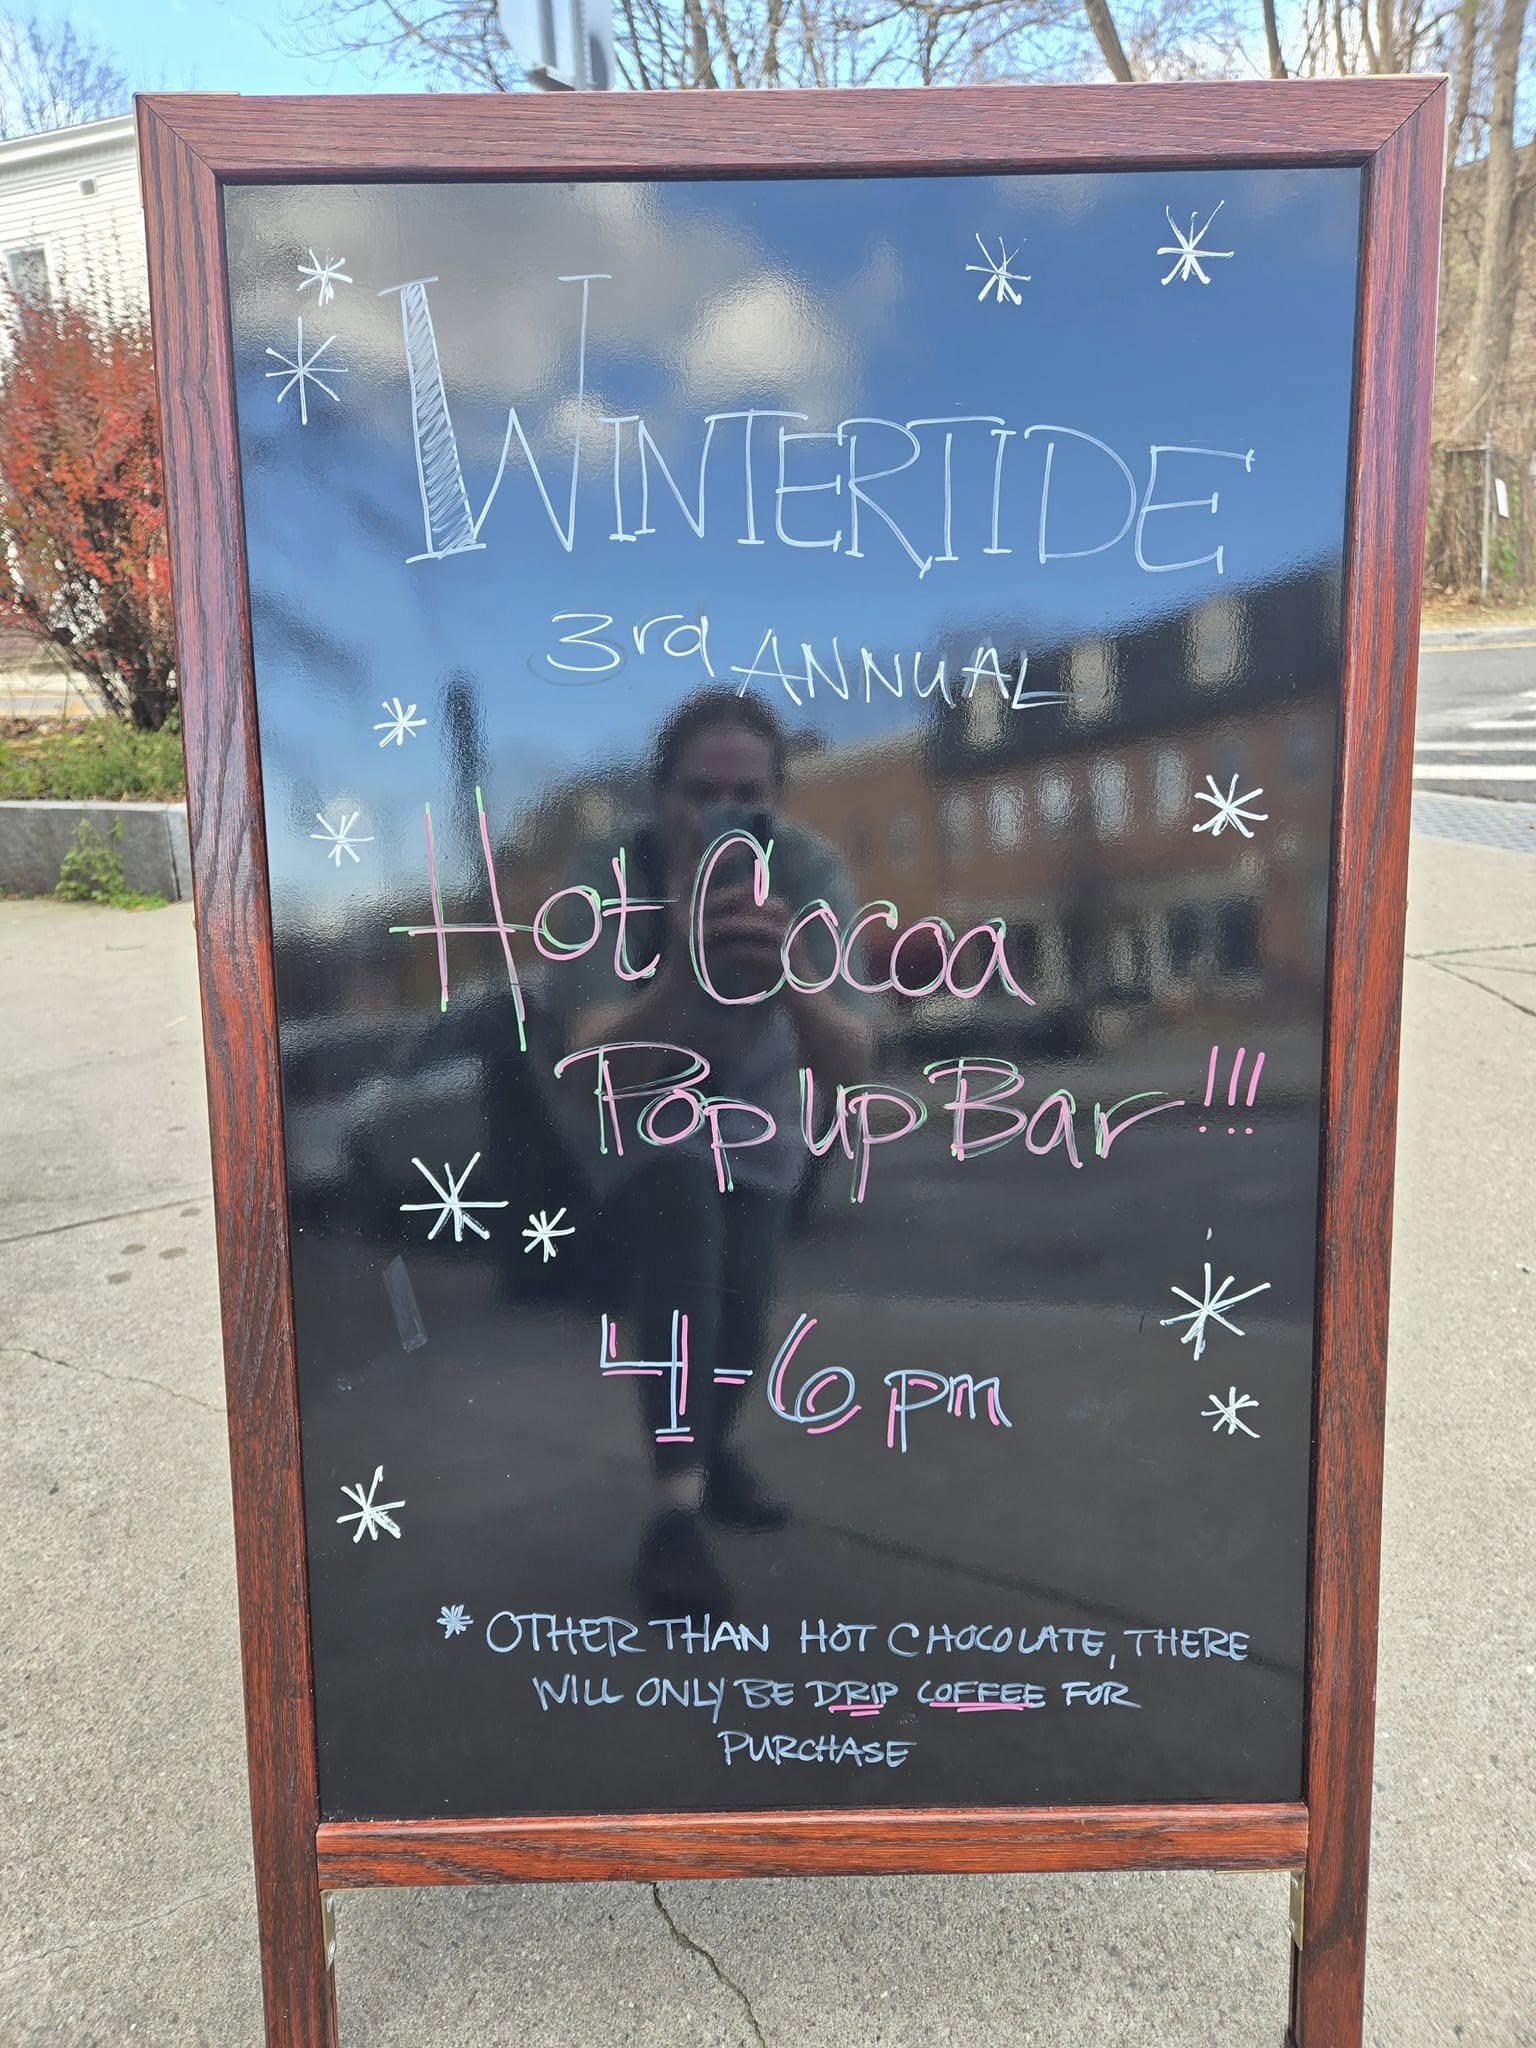 WINTERTIDE
3rd ANNUAL
Hot Cocoa
Pop Up Bar!!!
4-6pm
* OTHER THAN HOT CHOCOLATE, THERE
WILL ONLY BE DRIP COFFEE FOR
PURCHASE